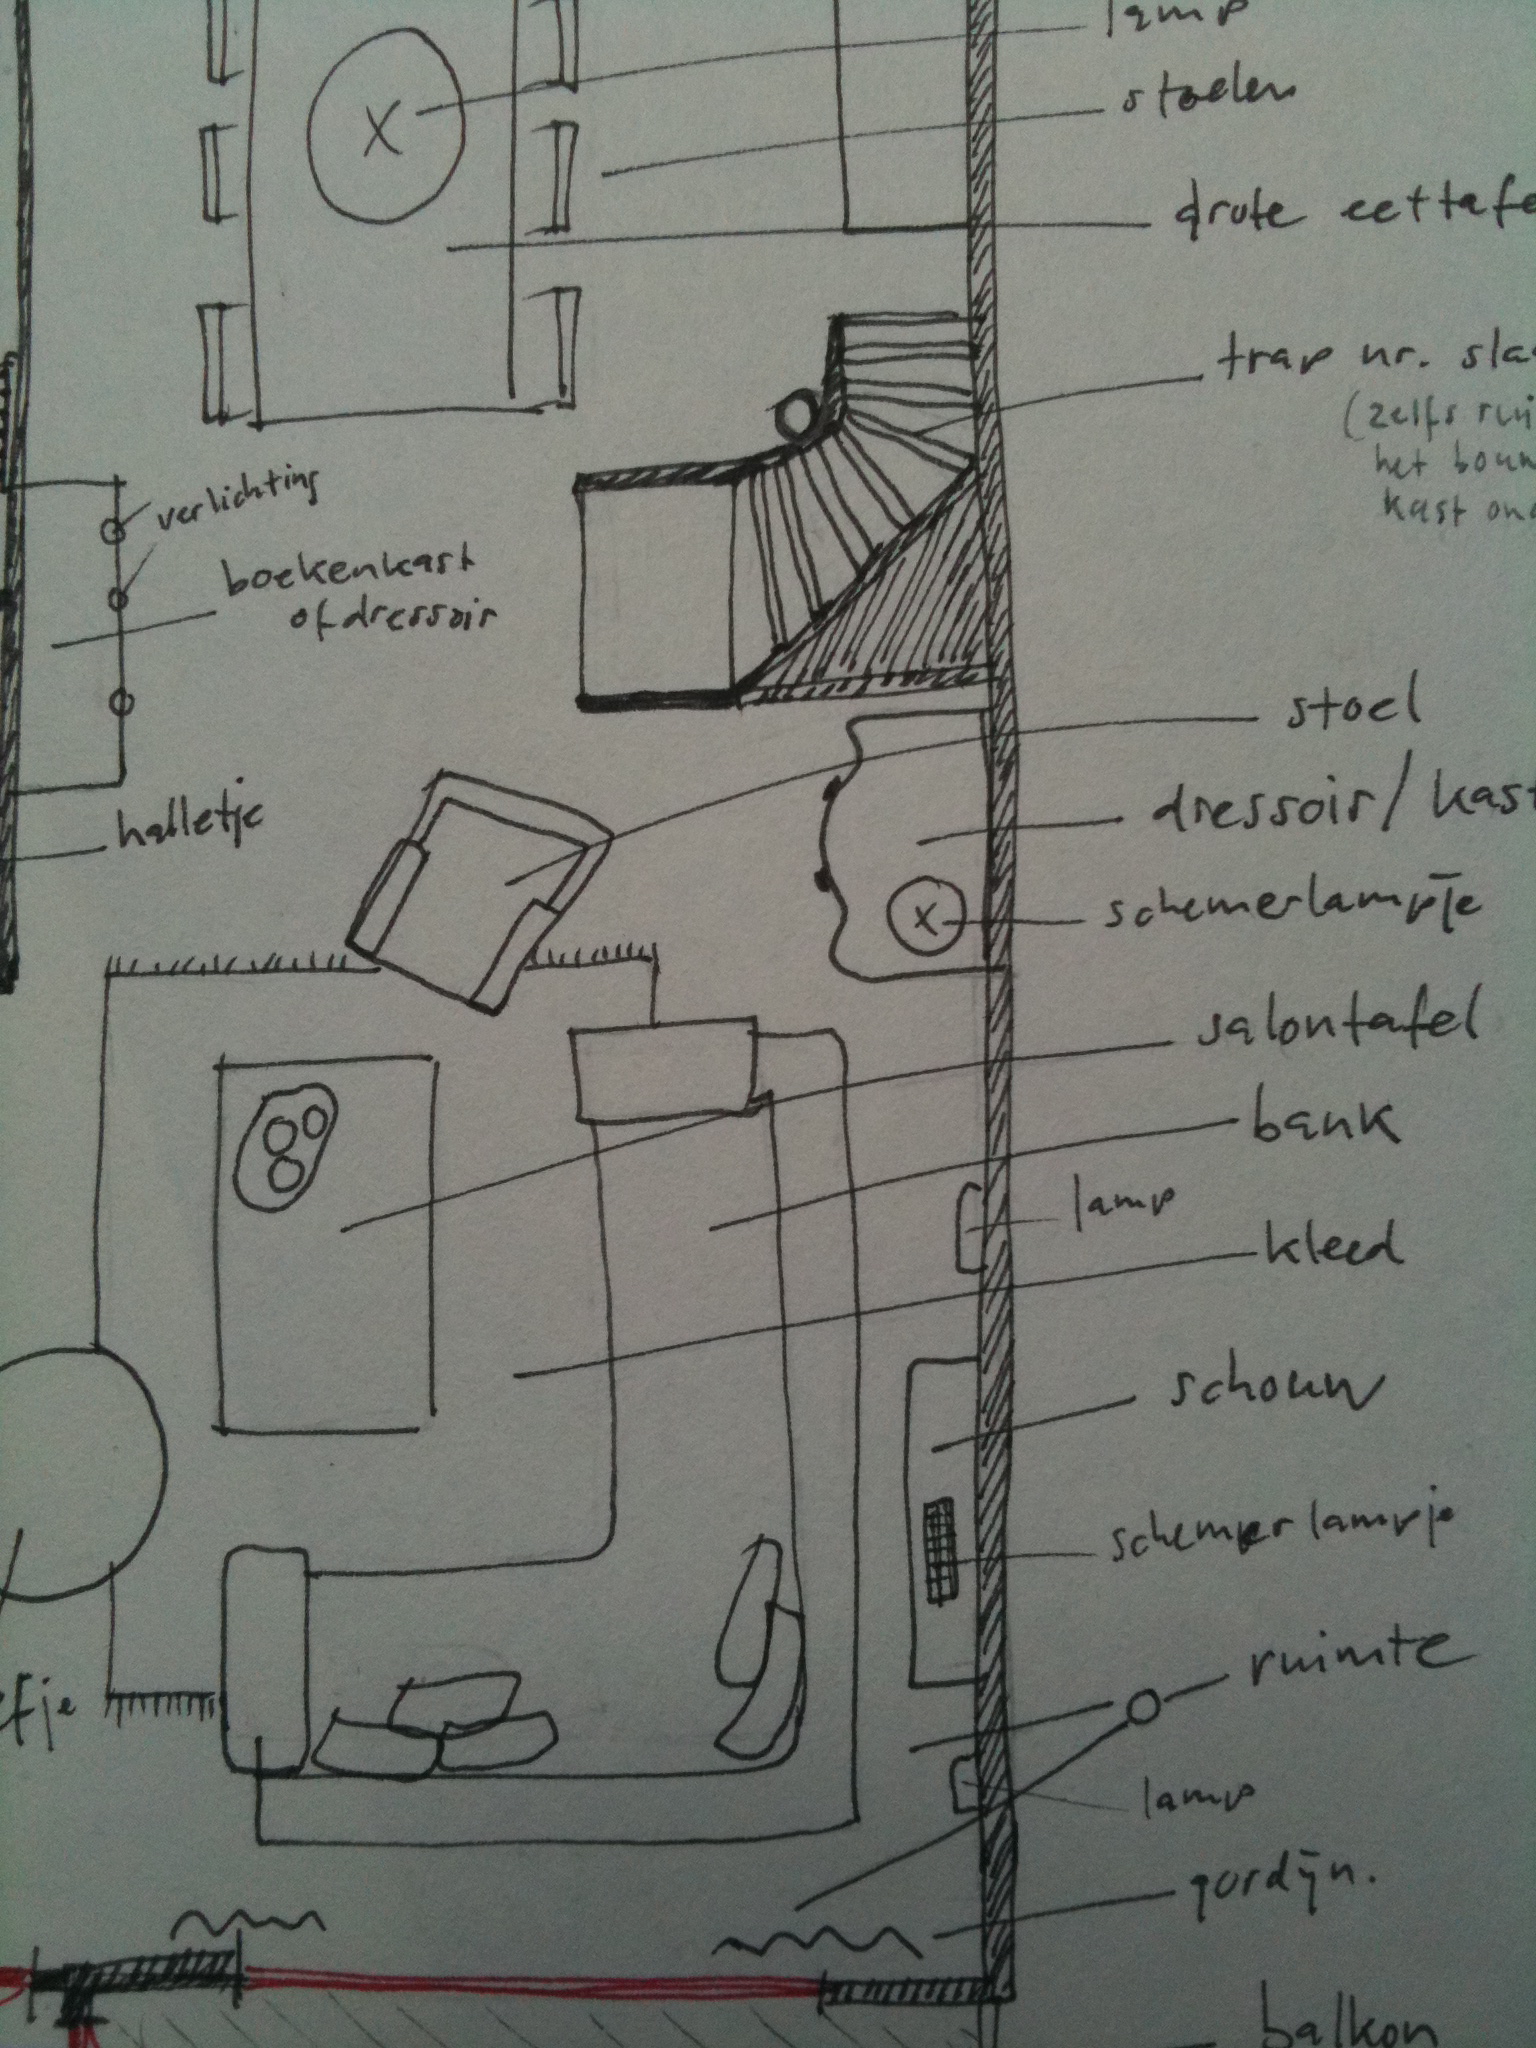 lamp
stoelen
grote eettafe
trap nr. sla
(zelfs rui
het bouw
kast ond
verlichting
boekenkast
of dressoir
stoel
dressoir/kast
halletje
schemerlampje
salontafel
bank
lamp
kleed
schouw
schemerlampje
ruimte
efje
lamp
gordijn.
balkon